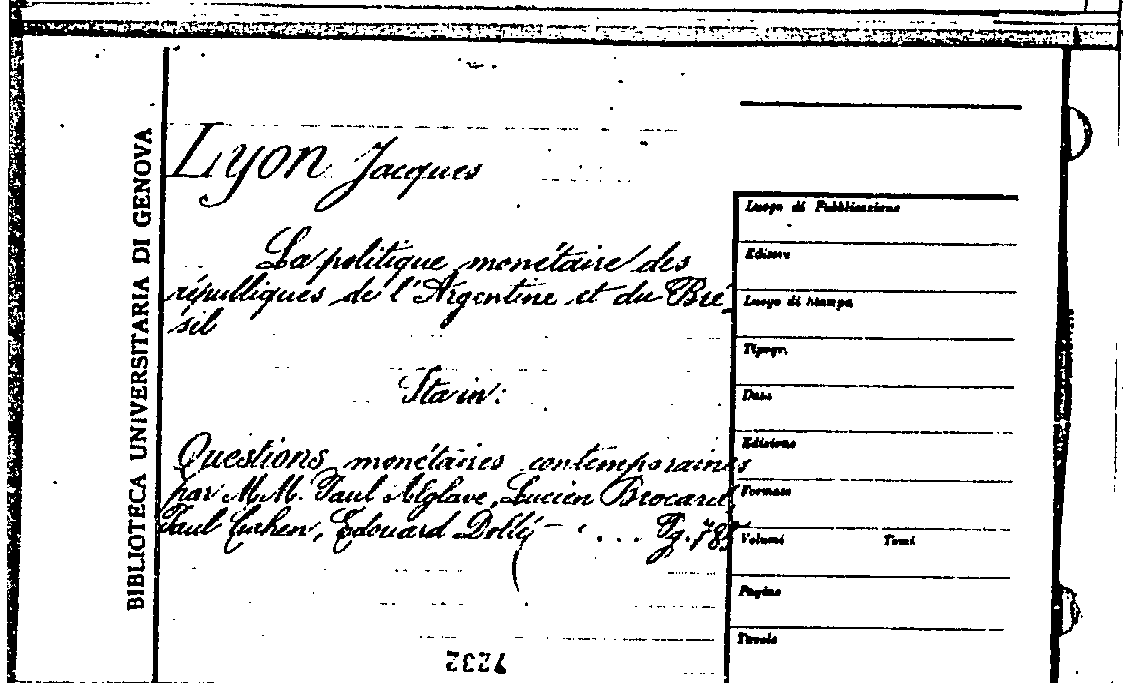 BIBLIOTECA UNIVERSITARIA DI GENOVA
Lyon Jacques
La politique monétaire des
républiques de l'Argentine et du Bré-
sil
Sta in:
Questions monétaires contemporaines
par M.M. Paul Alglave, Lucien Brocard
Paul Cuhen, Edouard Dolléy - . . . . Pg. 785
7232
Luogo di Pubblicazione
Editore
Luogo di stampa
Tipogr.
Data
Edizione
Formato
Volumi Tomi
Pagine
Tavole